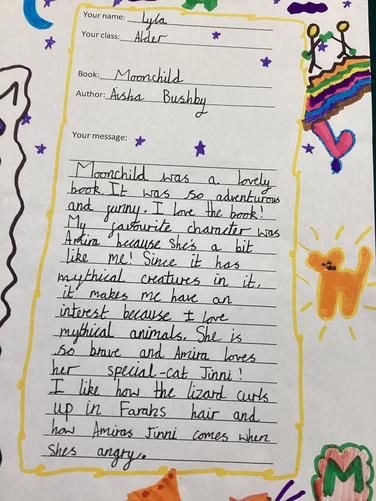 Your name: Lyla
Your class: Alder
Book: Moonchild
Author: Aisha Bushby
Your message:
Moonchild was a lovely
book. It was so adventurous
and funny. I love the book!
My favourite character was
Amira because she's a bit
like me! Since it has
mythical creatures in it,
it makes me have an
interest because I love
mythical animals. She is
so brave and Amira loves
her special-cat Jinni!
I like how the lizard curls
up in Farahs hair and
how Amiras Jinni comes when
shes angry.
M